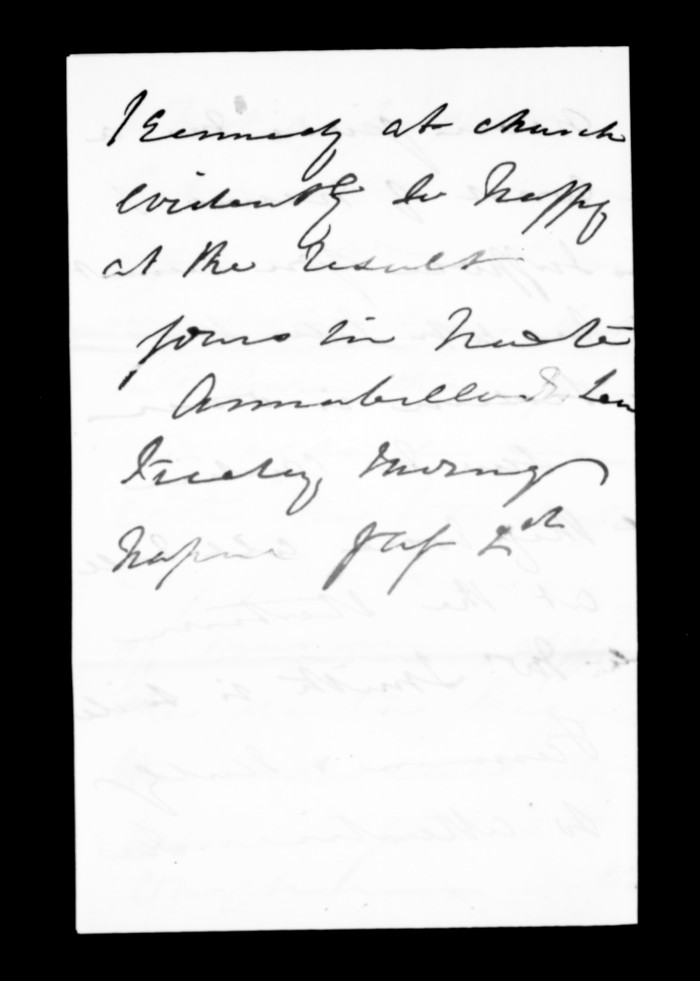 Kennedy at church
evidently so happy
at the result
yours in haste
Annabella
Friday Morning
Napier 2nd